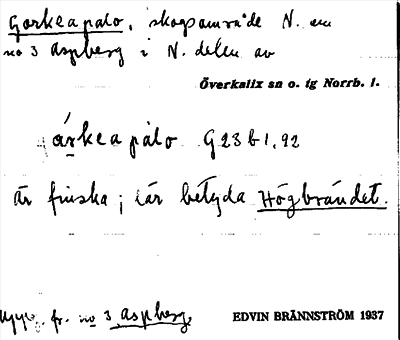 Gorkeapalo, skogsområde N. om
no 3 Aspberg i N. delen av
Överkalix sn o. tg Norrb. l.
árkea pálo G23 b 1, 92
är finska; lär betyda Högbrändet.
fr. no 3 Aspberg,
EDVIN BRÄNNSTRÖM 1937